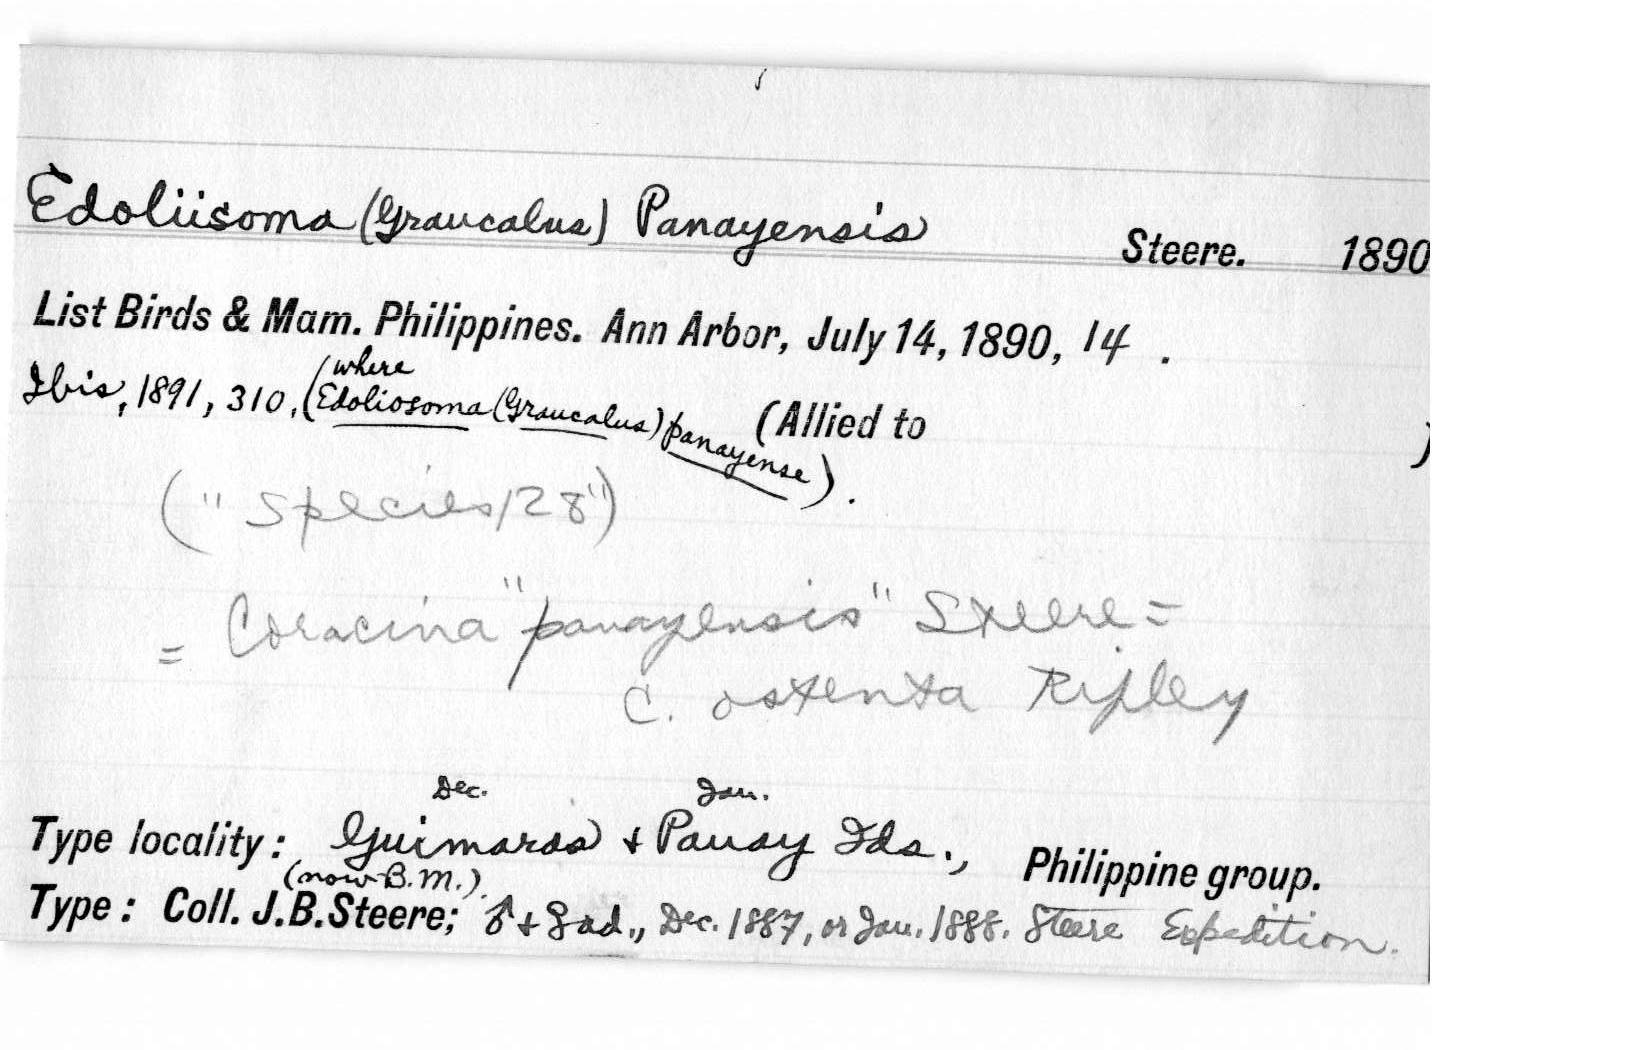 Edoliisoma (Graucalus) Panayensis Steere. 1890
List Birds & Mam. Philippines. Ann Arbor, July 14, 1890, 14 .
Ibis, 1891, 310, (where Edoliosoma (Graucalus) panayense). (Allied to )
("Species 128")
= Coracina "panayensis" Steere =
C. ostenta Ripley
Dec. Jan.
Type locality: Guimaras + Panay Ids., Philippine group.
(now B.M.)
Type: Coll. J.B.Steere; ♂ + ♀ ad., Dec. 1887, or Jan. 1888. Steere Expedition.